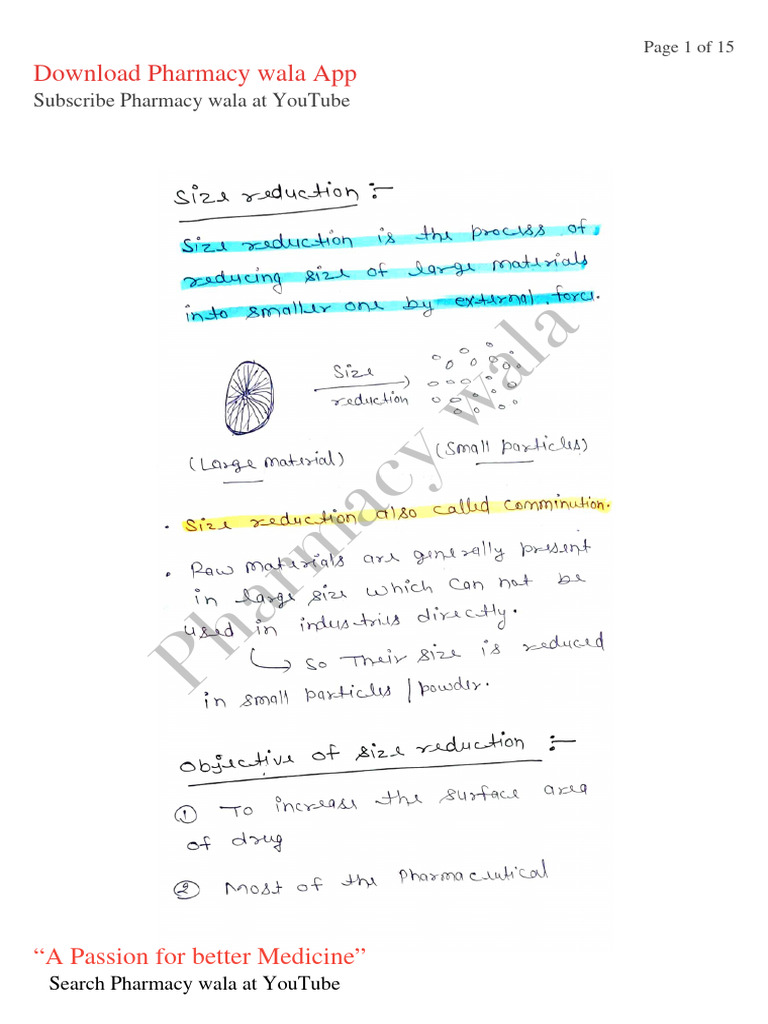 Page 1 of 15
Download Pharmacy wala App
Subscribe Pharmacy wala at YouTube
Size reduction :-
Size reduction is the process of
reducing size of large materials
into smaller one by external force.
Size
reduction
(Large material)
(Small particles)
• Size reduction also called comminution.
• Raw materials are generally present
in large size which can not be
used in industries directly.
So Their size is reduced
in small particles / powder.
Objective of size reduction :-
① To increase the surface area
of drug
② Most of the Pharmaceutical
Pharmacy wala
“A Passion for better Medicine”
Search Pharmacy wala at YouTube